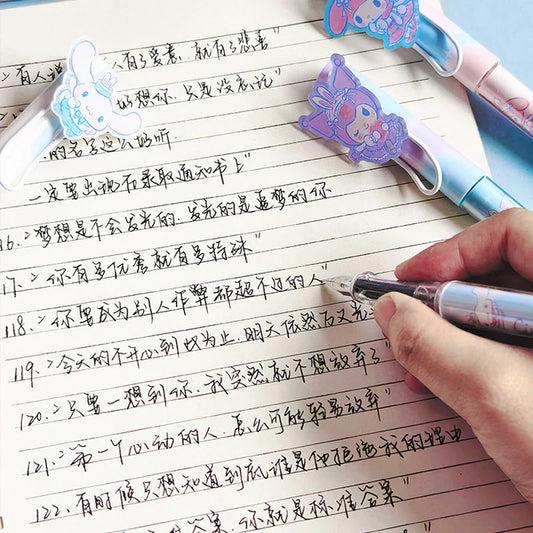 有人说 人有了爱意，就有了悲喜"
好想你，只是没忘记
的名字这么好听
一定要出现在录取通知书上"
116."梦想是不会发光的，发光的是追梦的你
117."你有多优秀就有多特殊"
118."你要成为别人作弊都超不过的人"
119."今天的不开心到此为止，明天依然
120."只要一想到你，我突然就不想放弃了"
121."第一个心动的人，怎么可能轻易放弃"
122.有时候只想知道到底谁是你拒绝我的理由
答案，你就是标准答案"